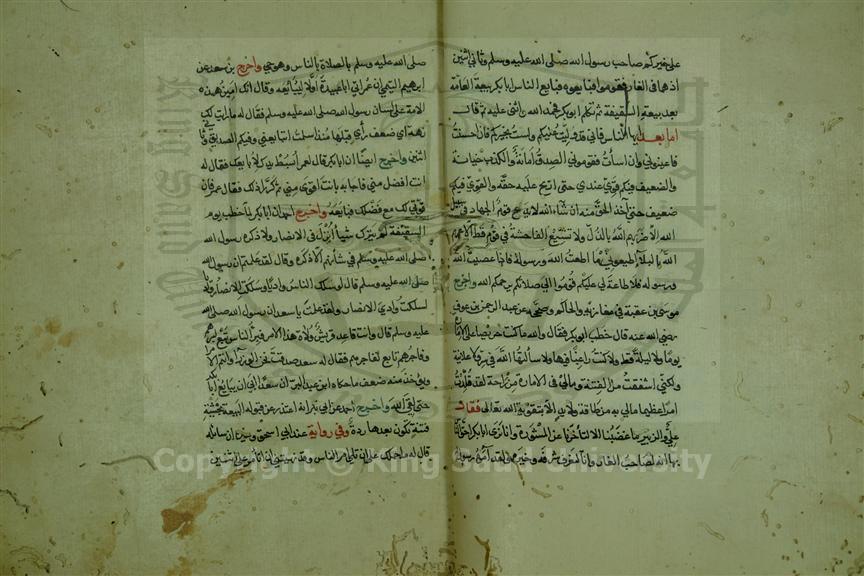 على خيركم صاحب رسول الله صلى الله عليه وسلم وثاني اثنين
اذ هما في الغار فقوموا فبايعوه فبايع الناس ابا بكر بيعة العامة
بعد بيعة السقيفة ثم تكلم ابو بكر فحمد الله واثنى عليه ثم قال
اما بعد ايها الناس فاني قد وليت عليكم ولست بخيركم فان احسنت
فاعينوني وان اسأت فقوموني الصدق امانة والكذب خيانة
والضعيف فيكم قوي عندي حتى اريح عليه حقه والقوي فيكم
ضعيف حتى آخذ الحق منه ان شاء الله لا يدع قوم الجهاد في سبيل
الله الا ضربهم الله بالذل ولا تشيع الفاحشة في قوم قط الا عمهم
الله بالبلاء اطيعوني ما اطعت الله ورسوله فاذا عصيت الله
ورسوله فلا طاعة لي عليكم قوموا الى صلاتكم يرحمكم الله واخرج
موسى بن عقبة في مغازيه والحاكم وصححه عن عبد الرحمن بن عوف
رضي الله عنه قال خطب ابو بكر فقال والله ما كنت حريصا على الامارة
يوما ولا ليلة قط ولا كنت راغبا فيها ولا سألتها الله في سر ولا علانية
ولكني اشفقت من الفتنة ومالي في الامارة من راحة لقد قلدت
امرا عظيما مالي به من طاقة ولا يد الا بتقوية الله تعالى فقال
علي والزبير ما غضبنا الا لتأخرنا عن المشورة وانا نرى ابا بكر احق الناس
بها انه لصاحب الغار وانا لنعرف شرفه وخيره ولقد امره رسول الله
صلى الله عليه وسلم بالصلاة بالناس وهو حي واخرج بن سعد عن
ابرهيم التيمي ان عمر اتى ابا عبيدة اولا ليبايعه وقال انك امين هذه
الامة على لسان رسول الله صلى الله عليه وسلم فقال له ما رايت لك
فهة اي ضعف رأي قبلها منذ اسلمت اتبايعني وفيكم الصديق وثاني
اثنين واخرج ايضا ان ابا بكر قال لعمر ابسط يدك لابايعك فقال له
انت افضل مني فاجابه بانت اقوى مني ثم كرر ذلك فقال عمر فان
قوتي لك مع فضلك فبايعه واخرج احمد ان ابا بكر لما خطب يوم
السقيفة لم يترك شيا أنزل في الانصار ولا ذكره رسول الله
صلى الله عليه وسلم في شأنهم الا ذكره وقال لقد علمتم ان رسول الله
صلى الله عليه وسلم قال لو سلك الناس واديا وسلكت الانصار واديا
لسلكت وادي الانصار ولقد علمت يا سعد ان رسول الله صلى الله
عليه وسلم قال وانت قاعد قريش ولاة هذا الامر فبر الناس تبع لبرهم
وفاجرهم تابع لفاجرهم فقال له سعد صدقت نحن الوزراء وانتم الامراء
ويؤخذ منه ضعف ما حكاه ابن عبد البر ان سعدا ابى ان يبايع ابا بكر
حتى لقي الله واخرج احمد عن ابي بكر انه اعتذر عن قبوله البيعة بخشية
فتنة تكون بعدها ردة وفي رواية عند ابي اسحق وغيره ان سائله
قال له ما حملك على ان تلي امر الناس وقد نهيتني ان اتأمر على اثنين
Copyright © King Saud University